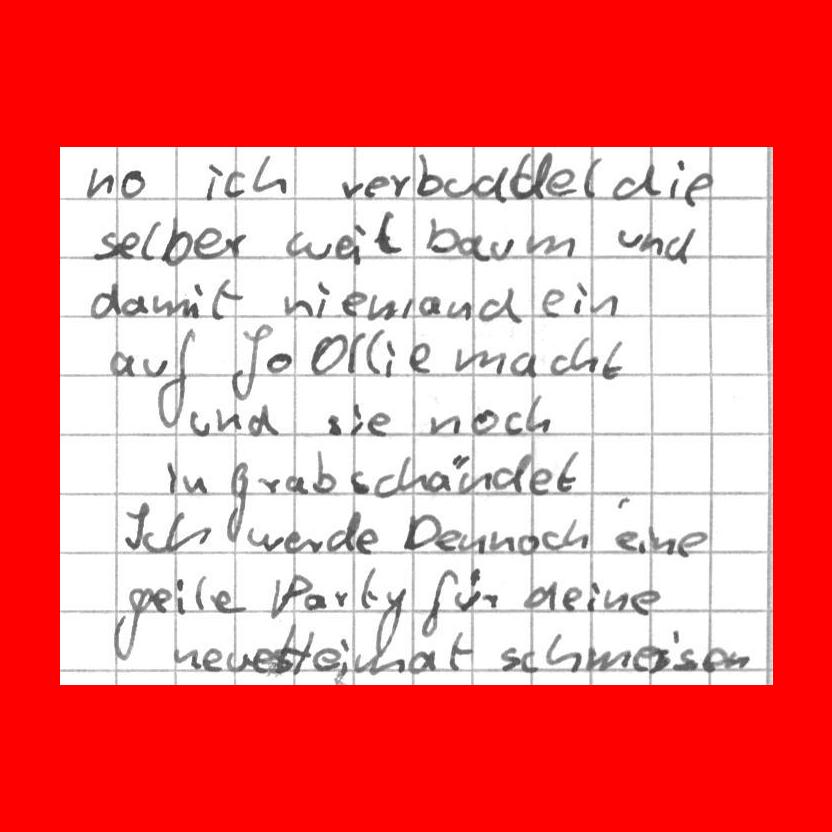 no ich verbuddel die
selber weit baum und
damit niemand ein
auf Jo Ollie macht
und sie noch
in grabschändet
Ich werde Dennoch eine
geile Party für deine
neue Heimat schmeisen